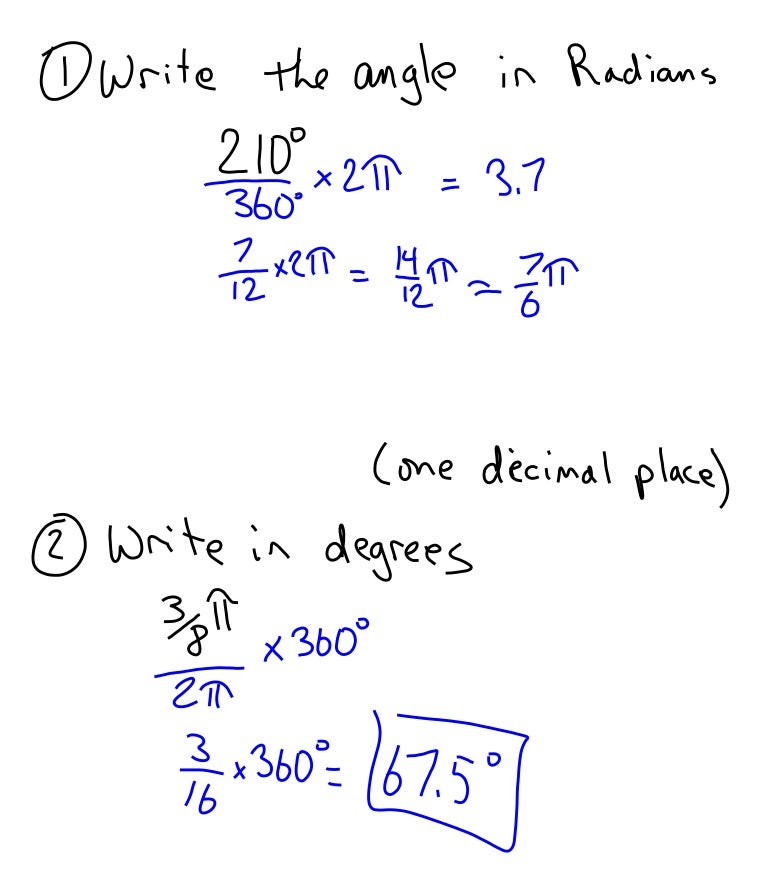 ① Write the angle in Radians
210°/360° × 2π = 3.7
7/12 × 2π = 14/12 π ≃ 7/6 π
(one decimal place)
② Write in degrees
3/8 π / 2π × 360°
3/16 × 360° = 67.5°